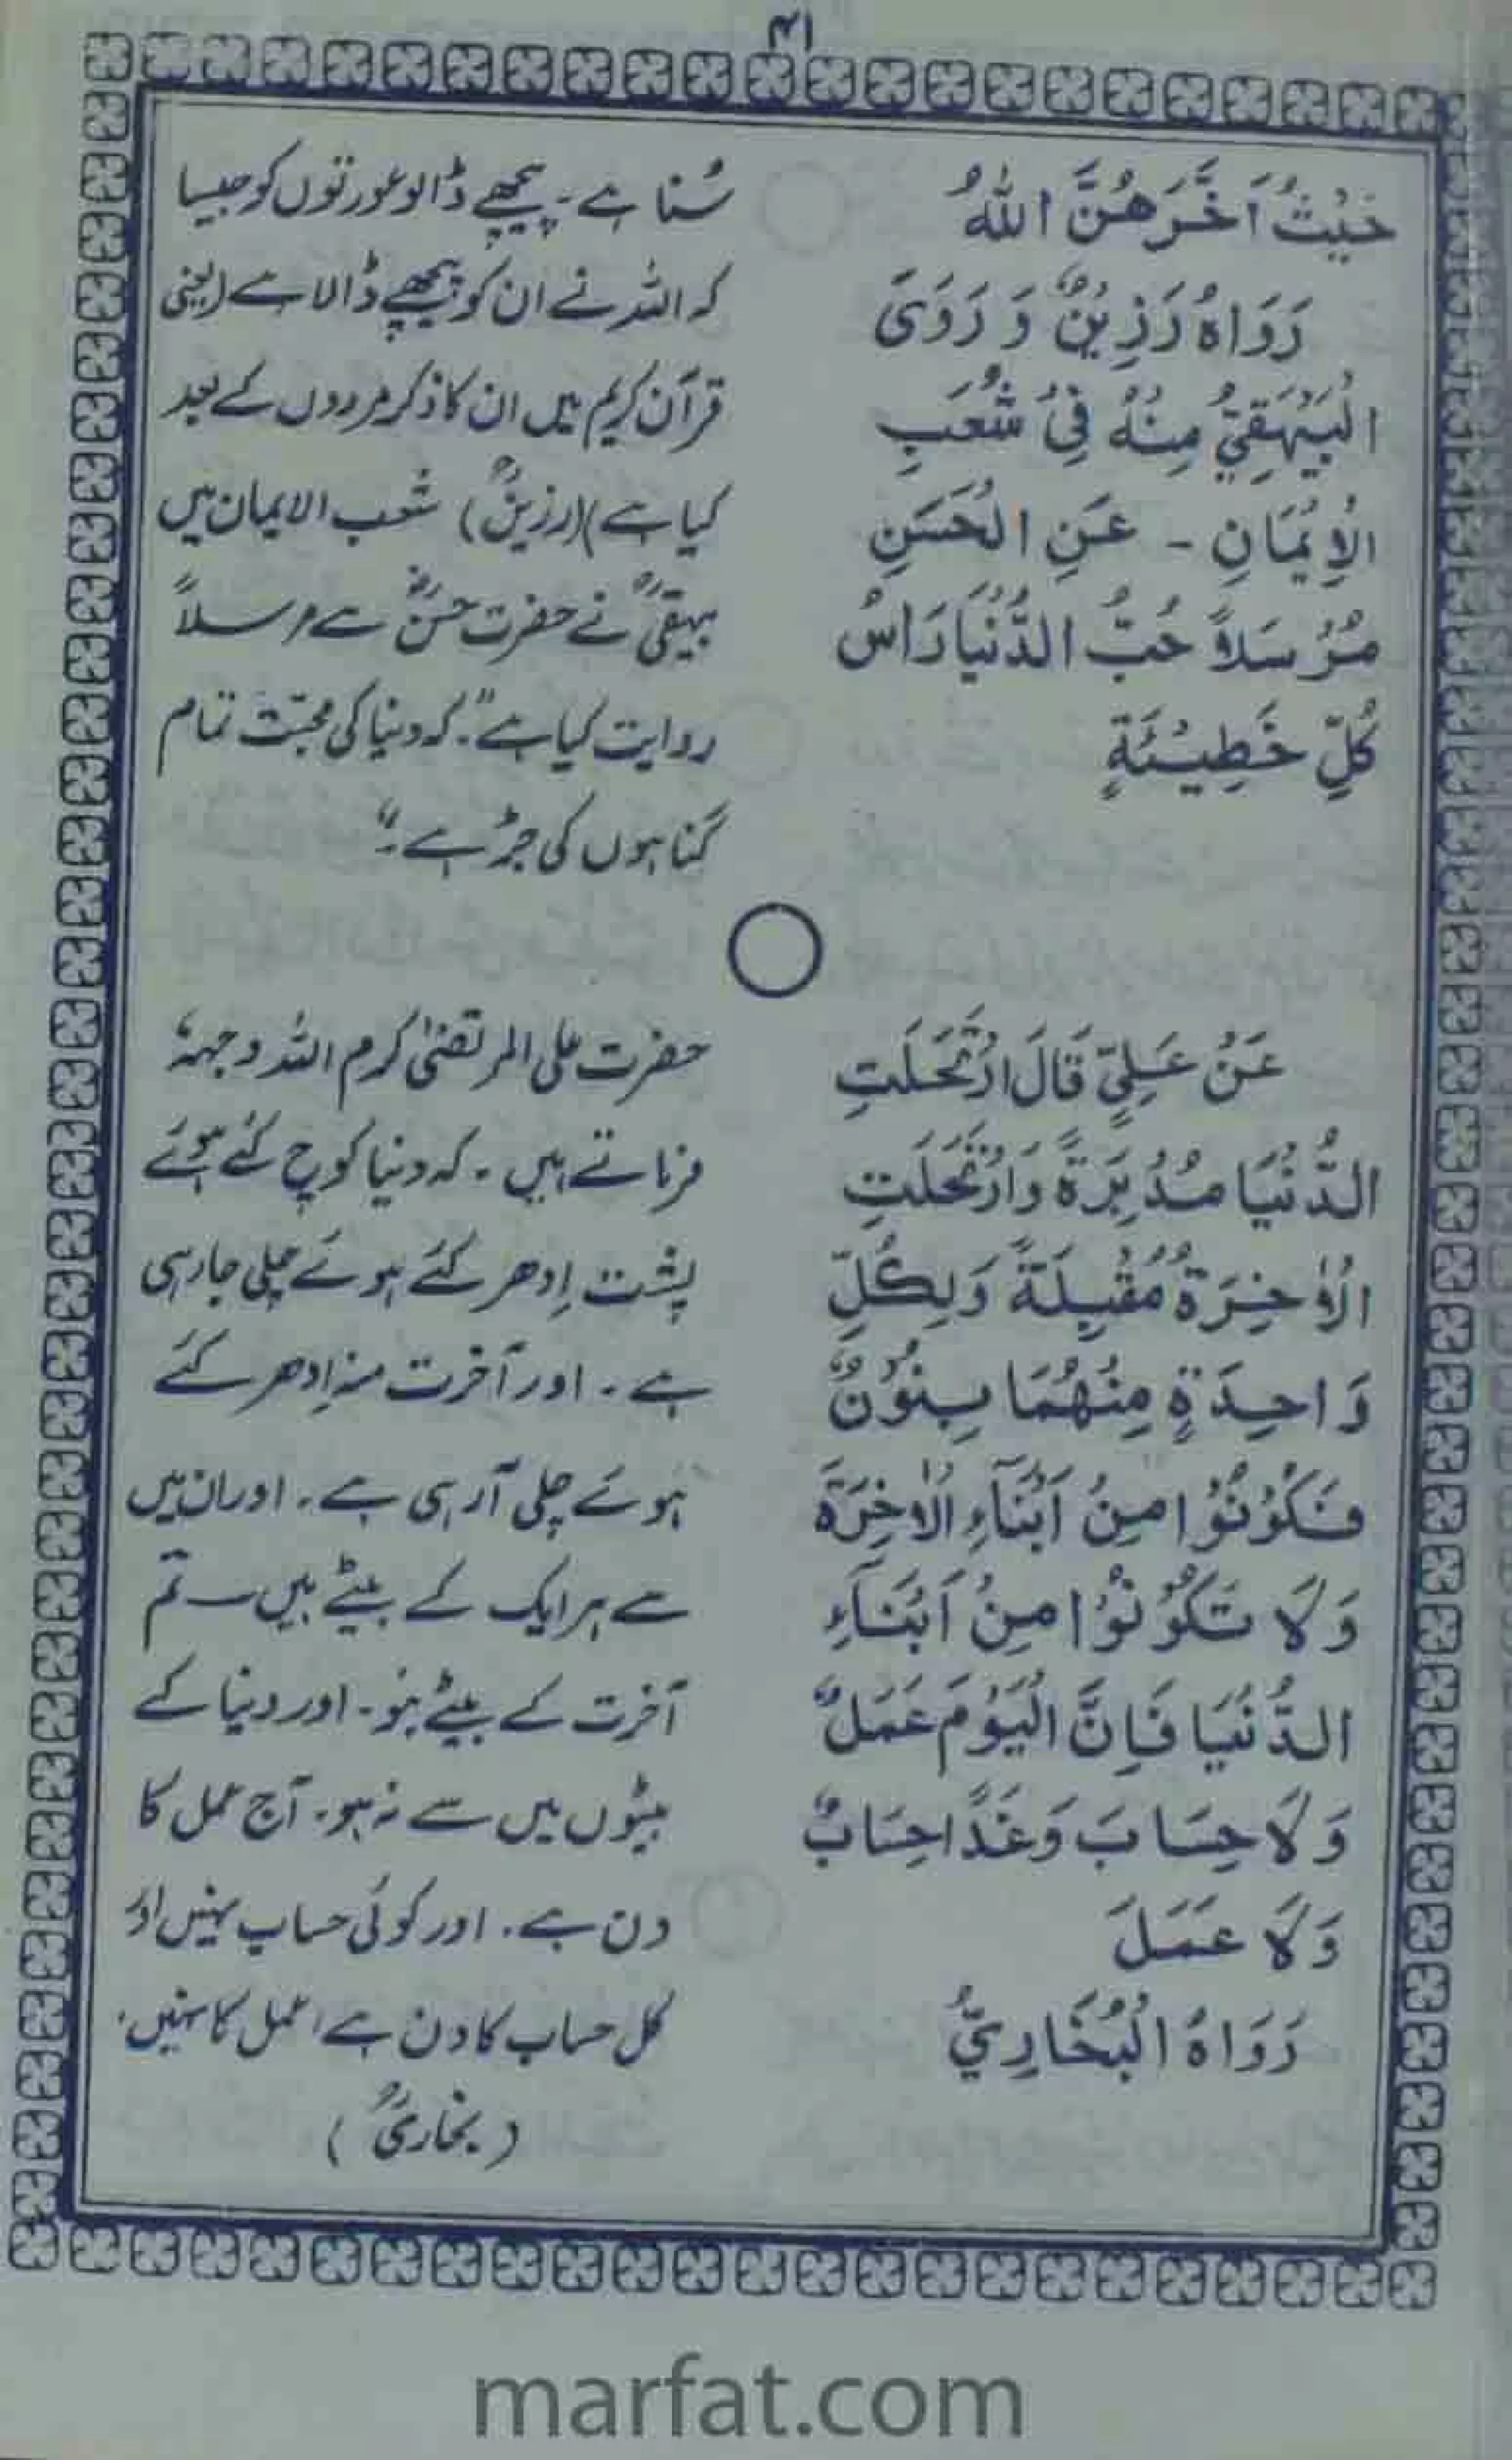 ۳۱
حَیْثُ اَخَّرَھُنَّ اللّٰهُ
رَوَاهُ رَزِیْنٌ وَ رَوَی
الْبَیْهَقِیُّ مِنْهُ فِیْ شُعَبِ
الْاِیْمَانِ - عَنِ الْحَسَنِ
مُرْسَلاً حُبُّ الدُّنْیَا رَاسُ
کُلِّ خَطِیْئَةٍ
سُنا ہے۔ پیچھے ڈالو عورتوں کو جیسا
کہ اللہ نے ان کو پیچھے ڈالا ہے (یعنی
قرآن کریم میں ان کا ذکر مردوں کے بعد
کیا ہے) (رزینؒ) شعب الایمان میں
بیہقیؒ نے حضرت حسنؓ سے مرسلاً
روایت کیا ہے"۔ کہ دنیا کی محبّت تمام
گناہوں کی جڑ ہے۔"
عَنْ عَلِیٍّ قَالَ ارْتَحَلَتِ
الدُّنْیَا مُدْبِرَةً وَارْتَحَلَتِ
الْاٰخِرَةُ مُقْبِلَةً وَلِکُلِّ
وَاحِدَةٍ مِنْهُمَا بِنُوْنٌ
فَکُوْنُوْا مِنْ اَبْنَآءِ الْاٰخِرَةَ
وَلَا تَکُوْنُوْا مِنْ اَبْنَآءِ
الدُّنْیَا فَاِنَّ الْیَوْمَ عَمَلٌ
وَلَا حِسَابَ وَغَدًا حِسَابٌ
وَلَا عَمَلَ
رَوَاهُ الْبُخَارِیُّ
حضرت علی المرتضیٰ کرم اللہ وجہہٗ
فرماتے ہیں۔ کہ دنیا کوچ کئے ہوئے
پشت اِدھر کئے ہوئے چلی جارہی
ہے۔ اور آخرت منہ اِدھر کئے
ہوئے چلی آرہی ہے۔ اور ان میں
سے ہر ایک کے بیٹے ہیں ۔ تم
آخرت کے بیٹے بنو۔ اور دنیا کے
بیٹوں میں سے نہ ہو۔ آج عمل کا
دن ہے۔ اور کوئی حساب نہیں اور
کل حساب کا دن ہے، عمل کا نہیں،
(بخاریؒ)
marfat.com